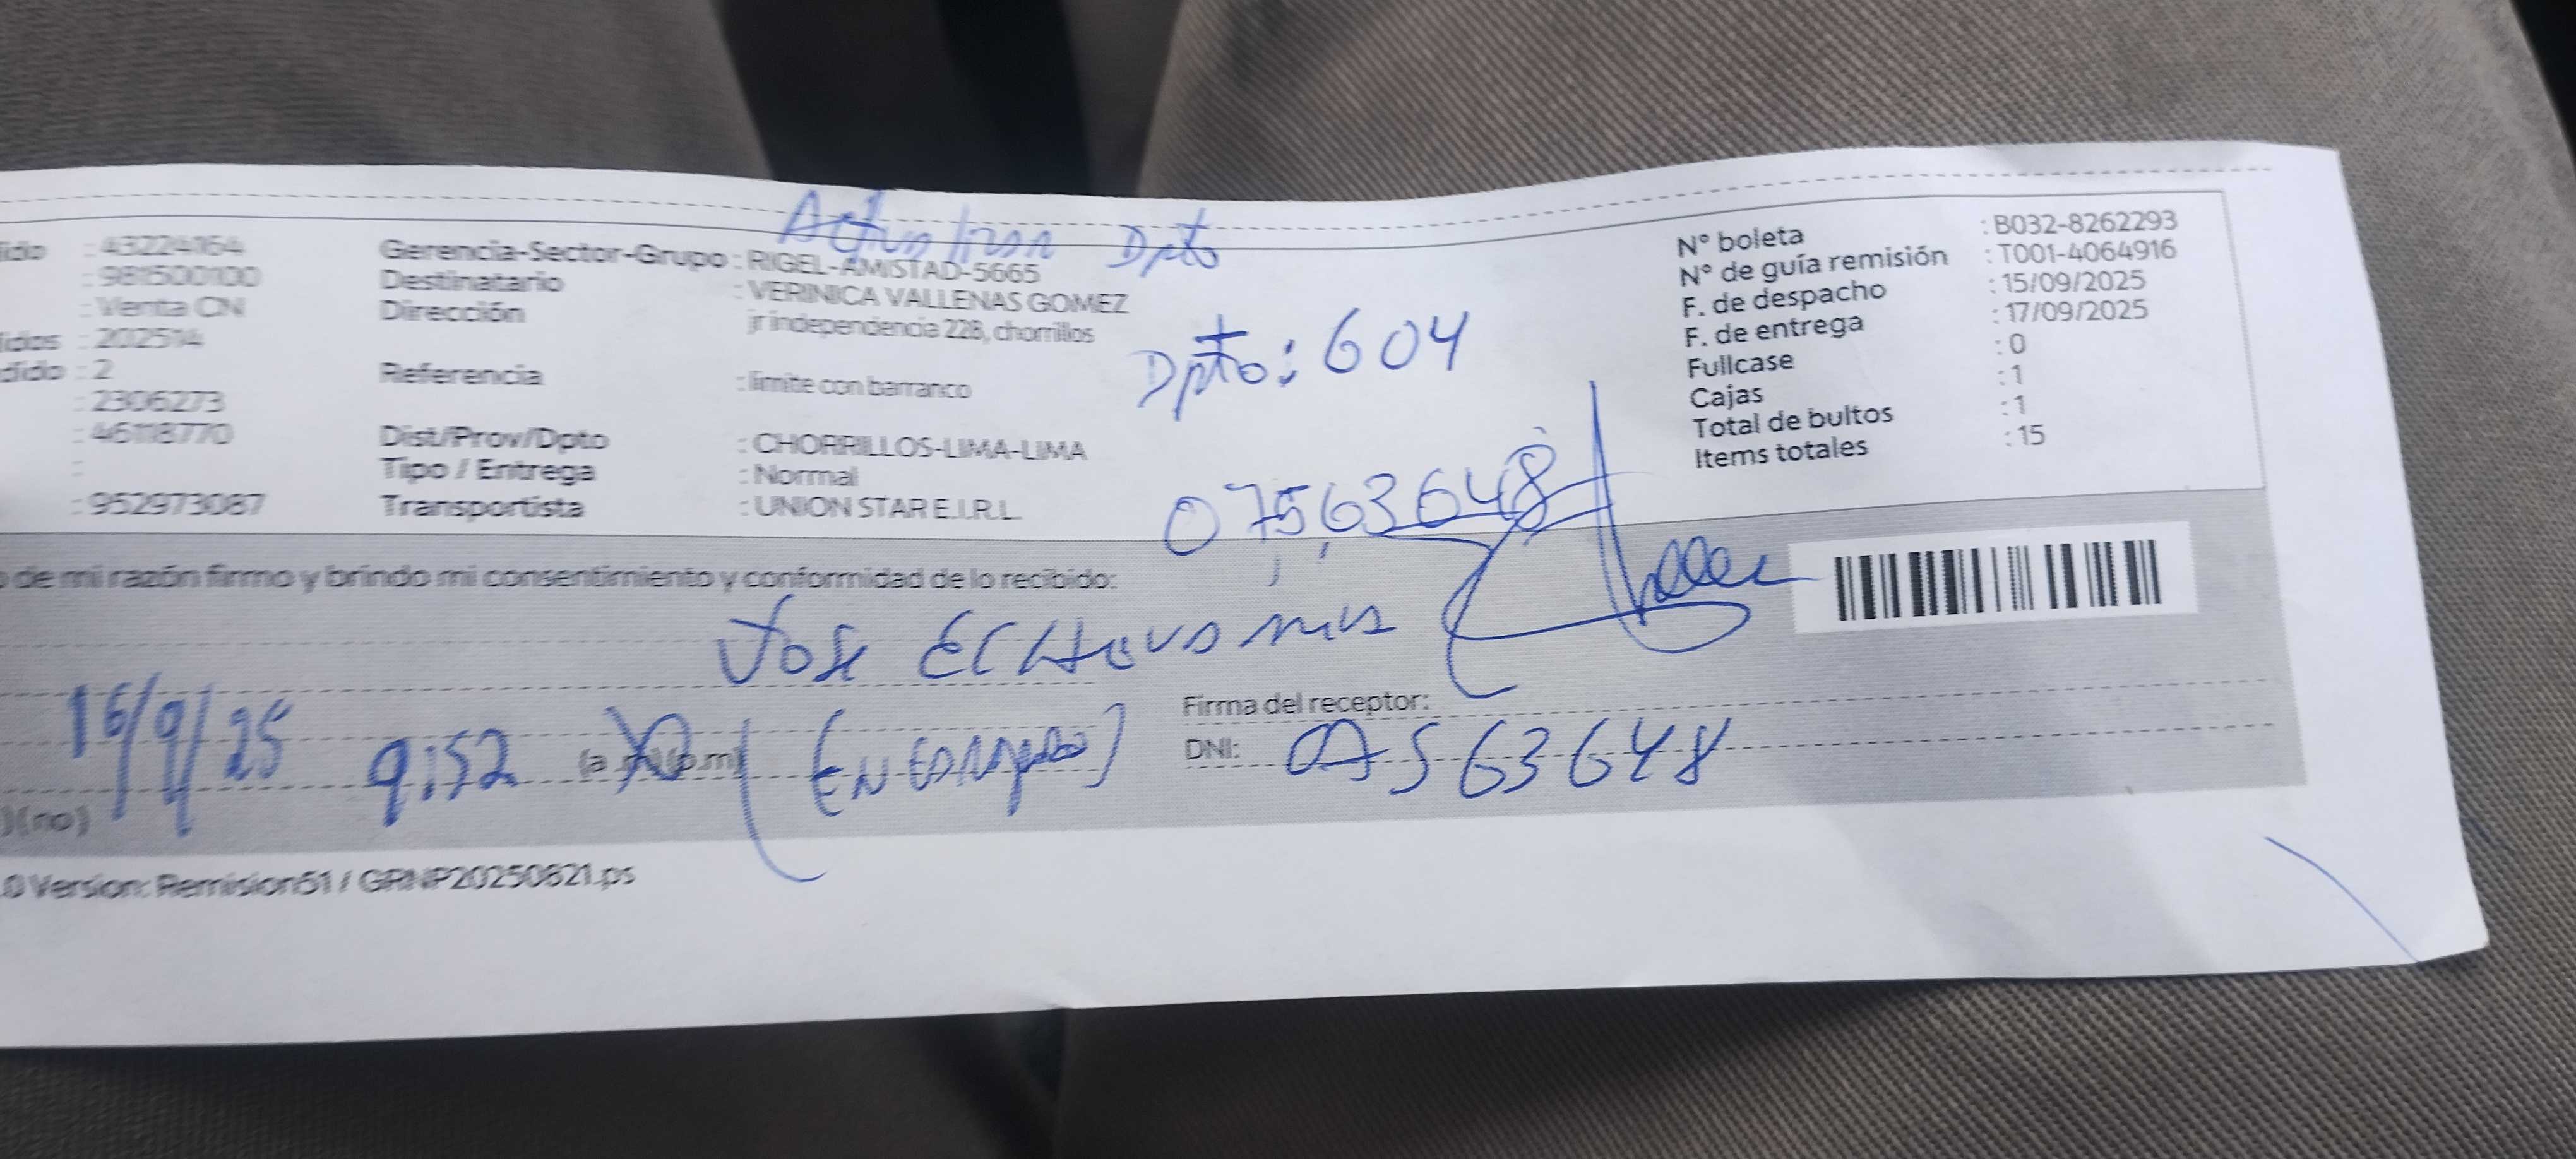 Actualizar Dpto
: 43224164
: 981500100
: Venta CN
: 202514
: 2
: 2306273
: 46118770
:
: 952973087
Gerencia-Sector-Grupo : RIGEL-AMISTAD-5665
Destinatario : VERINICA VALLENAS GOMEZ
Dirección jr independencia 228, chorrillos
Referencia : limite con barranco
Dist/Prov/Dpto : CHORRILLOS-LIMA-LIMA
Tipo / Entrega : Normal
Transportista : UNION STAR E.I.R.L.
Dpto: 604
07563648
N° boleta : B032-8262293
N° de guía remisión : T001-4064916
F. de despacho : 15/09/2025
F. de entrega : 17/09/2025
Fullcase : 0
Cajas : 1
Total de bultos : 1
Items totales : 15
de mi razón firmo y brindo mi consentimiento y conformidad de lo recibido:
Jose
16/9/25 9:52
Firma del receptor:
DNI: 07563648
)(no)
.0 Version: Remision51 / GRNP20250821.ps